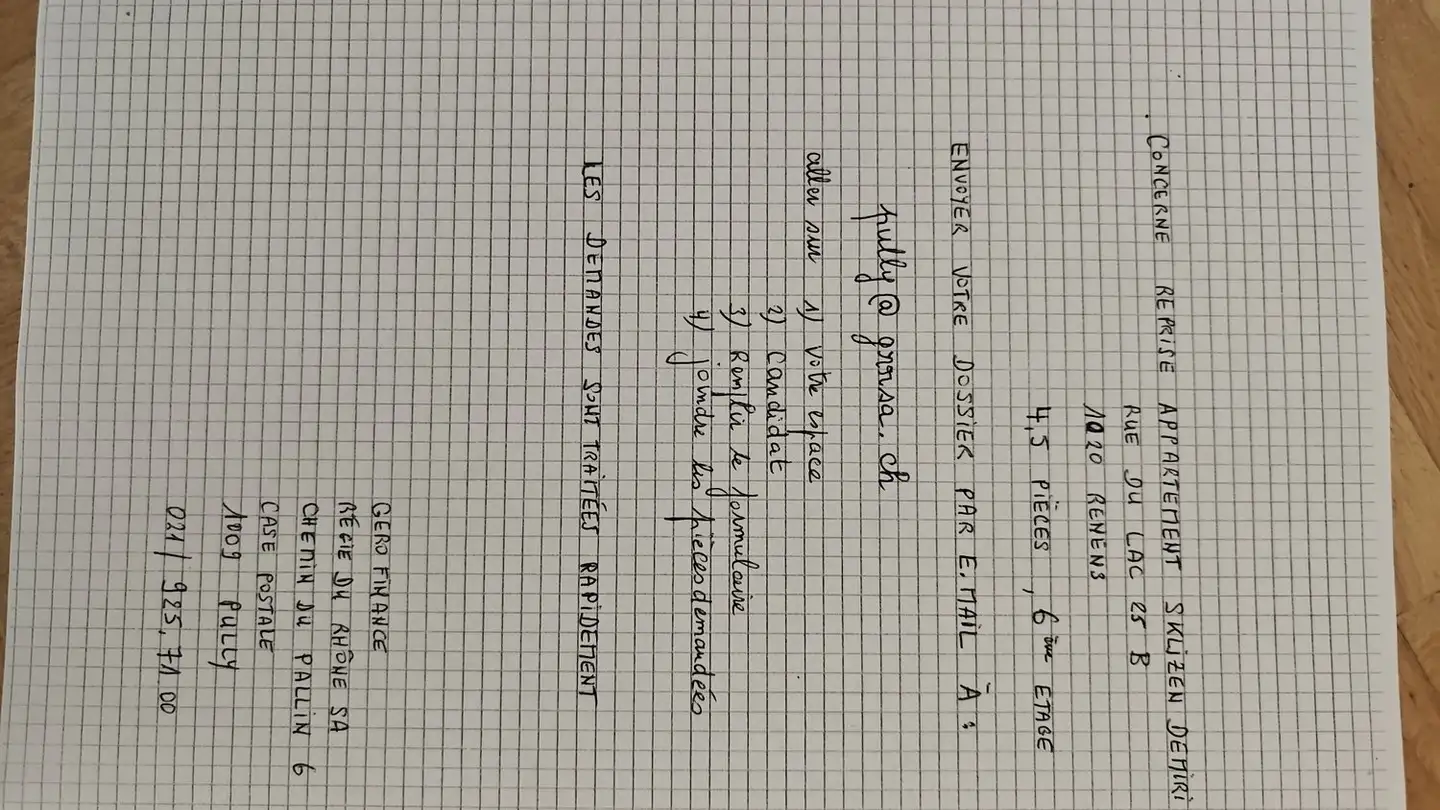 CONCERNE REPRISE APPARTEMENT SKLIZEN DEMIRI
RUE DU LAC 25 B
1020 RENENS
4,5 PIÈCES, 6ème ETAGE
ENVOYER VOTRE DOSSIER PAR E.MAIL À :
pully@grrsa.ch
aller sur 1) Votre espace
2) Candidat
3) Remplir le formulaire
4) joindre les pièces demandées
LES DEMANDES SONT TRAITÉES RAPIDEMENT
GEROFINANCE
RÉGIE DU RHÔNE SA
CHEMIN DU PALLIN 6
CASE POSTALE
1009 PULLY
021/925.71.00